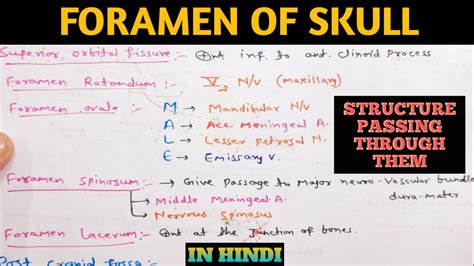 FORAMEN OF SKULL
Superior orbital fissure :- → Pnt inf. to ant. clinoid process
Foramen Rotandum :- V₂ N/v (Maxillary)
Foramen ovale :- M → Mandibular N/v
A → Acc. Meningeal A.
L → Lesser petrosal N.
E → Emissary V.
STRUCTURE
PASSING
THROUGH
THEM
Foramen Spinosum :- → Give passage to Major neuro-Vascular bundle
dura-mater
→ Middle Meningeal A.
→ Nervous Spinosus
Foramen Lacerum :- Pnt at the junction of bones.
IN HINDI
Post Cranial fossa :-